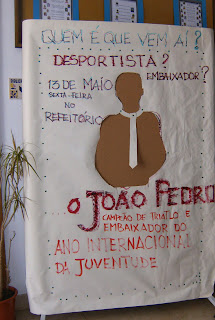 QUEM É QUE VEM AÍ?
DESPORTISTA?
EMBAIXADOR?
13 DE MAIO
SEXTA-FEIRA
NO
REFEITÓRIO
O JOÃO PEDRO
CAMPEÃO DE TRIATLO E
EMBAIXADOR DO
ANO INTERNACIONAL
DA JUVENTUDE